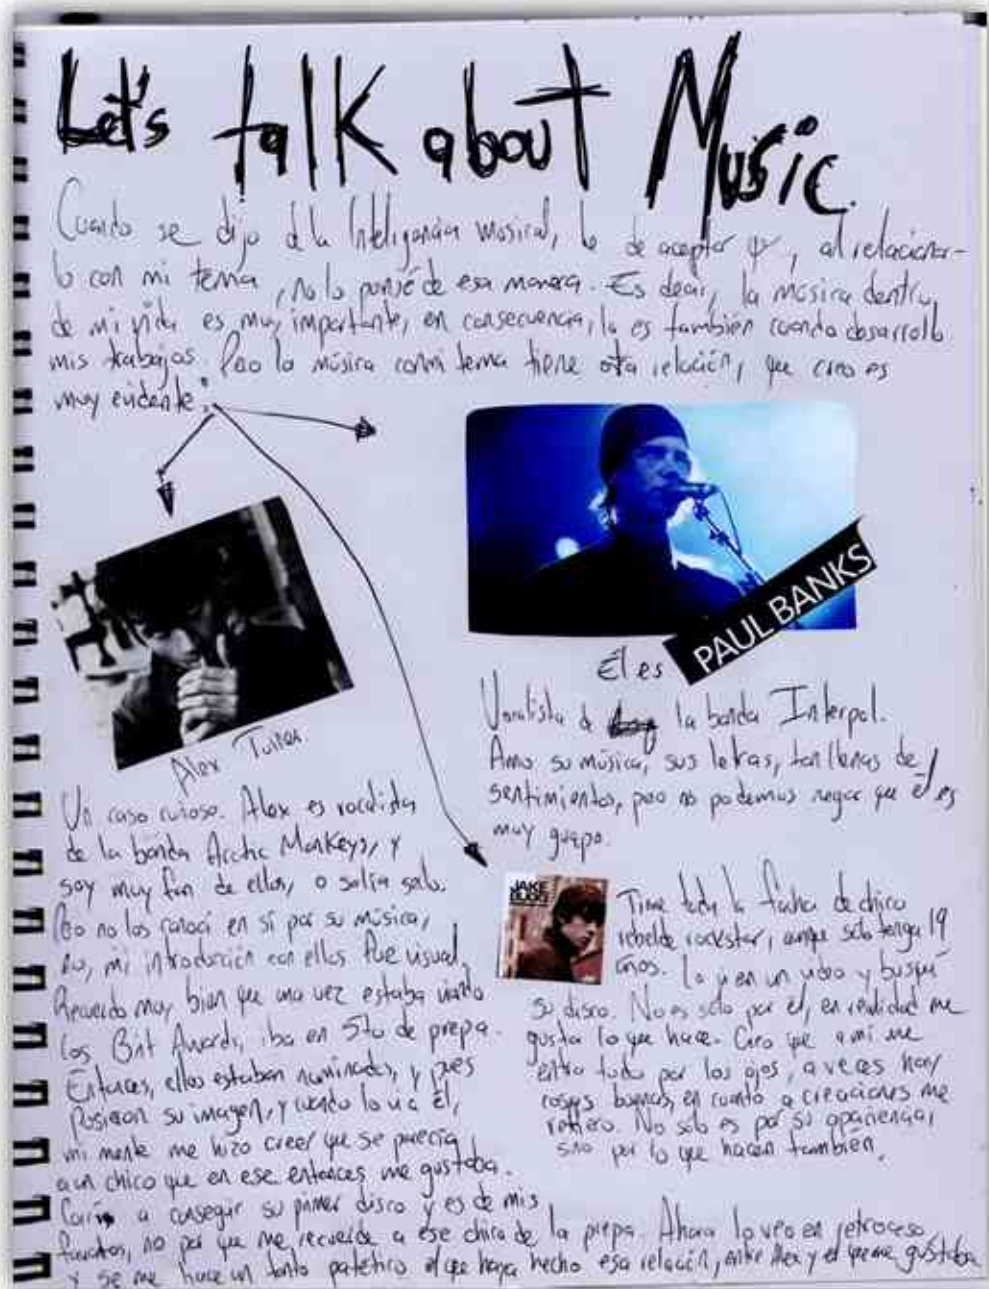 Let's talk about Music.
Cuando se dijo de la Inteligencia musical, he de aceptar que, al relacionar-
lo con mi tema, no lo pensé de esa manera. Es decir, la música dentro
de mi vida es muy importante, en consecuencia, lo es también cuando desarrollo
mis trabajos. Pero la música con mi tema tiene otra relación, que creo es
muy evidente:
PAUL BANKS
Él es
Vocalista de la banda Interpol.
Amo su música, sus letras, tan llenas de
sentimientos, pero no podemos negar que él es
muy guapo.
Alex Turner.
Un caso curioso. Alex es vocalista
de la banda Arctic Monkeys, y
soy muy fan de ellos, o solía serlo.
Pero no los conocí en sí por su música,
no, mi introducción con ellos fue visual.
Recuerdo muy bien que una vez estaba viendo
los Brit Awards, iba en 5to de prepa.
Entonces, ellos estaban nominados, y pues
pusieron su imagen, y cuando lo vi a él,
mi mente me hizo creer que se parecía
a un chico que en ese entonces me gustaba.
Corrí a conseguir su primer disco y es de mis
favoritos, no por que me recuerde a ese chico de la prepa. Ahora lo veo en retroceso,
y se me hace un tanto patético el que haya hecho esa relación, entre Alex y el que me gustaba
JAKE
BUGG
Tiene toda la facha de chico
rebelde rockstar, aunque sólo tenga 19
años. Lo vi en un video y busqué
su disco. No es sólo por él, en realidad me
gusta lo que hace. Creo que a mi me
entra todo por los ojos, a veces hay
cosas buenas, en cuanto a creaciones me
refiero. No sólo es por su apariencia,
sino por lo que hacen también.